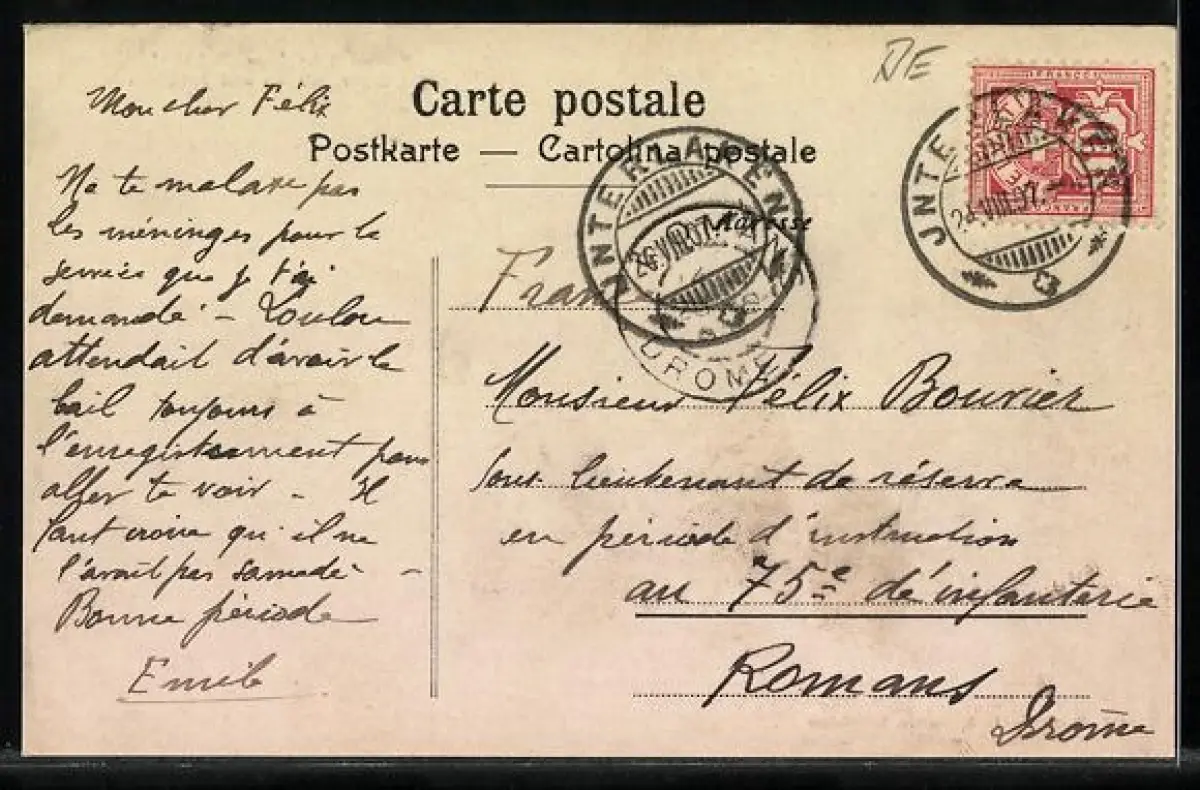 DE
Carte postale
Postkarte — Cartolina postale
Adresse
FRANCO
10
JNTERLAKEN
VIII.07.
JNTERLAKEN
VIII.07
ROMANS
DROME
Mon cher Félix
Ne te malaxe pas
les méninges pour le
service que je t'ai
demandé - Loulou
attendait d'avoir le
bail toujours à
l'enregistrement pour
aller te voir - il
faut croire qu'il ne
l'avait pas samedi -
Bonne période
Emile
France
Monsieur Félix Bouvier
sous lieutenant de réserve
en période d'instruction
au 75e d'infanterie
Romans
Drome